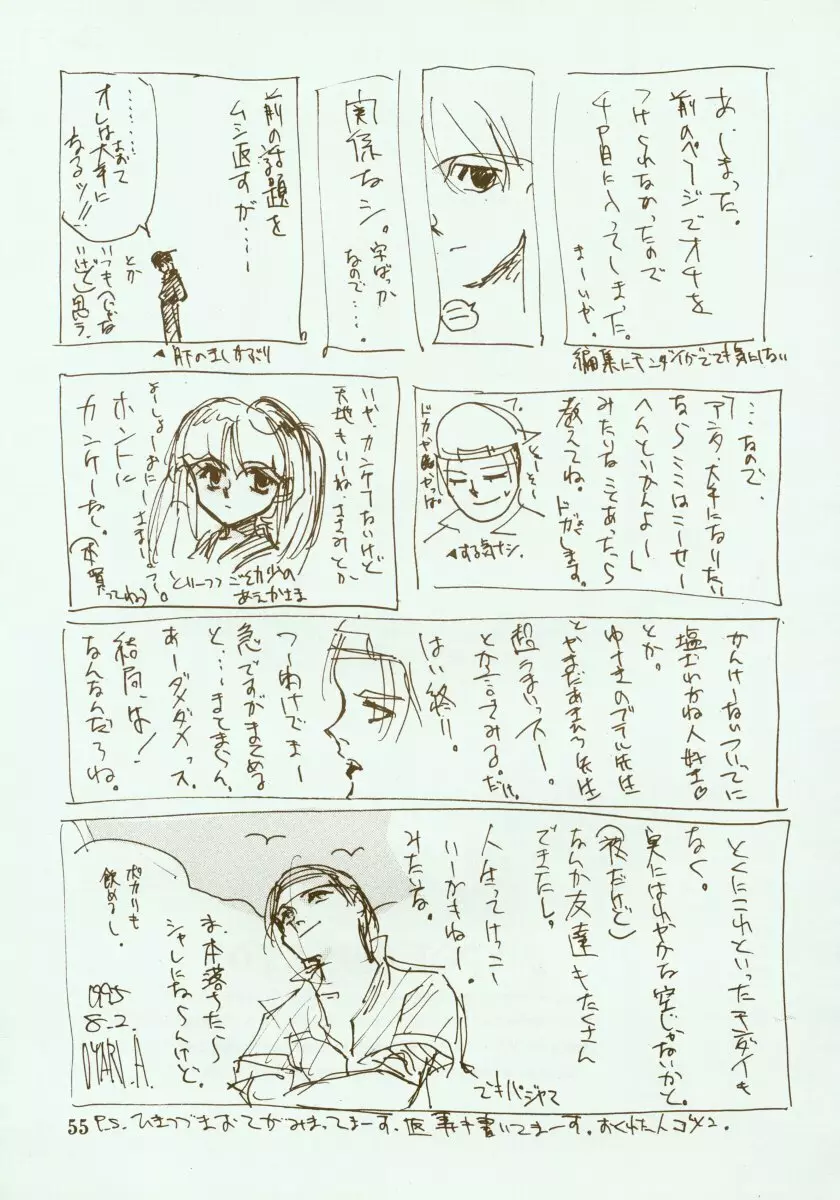 あ、しまった。
前のページでオチを
つけられなかったので
4P目に入ってしまった。
まーいや。
編集にモンダイがでても気にしない
関係ナシ。
字ばっか
なので…。
前の話題を
ムシ返すが…
………
オレは大手に
なるッ!!
とか
いつもへいぜな
思う。
…なので、
アンタ、大手になりたい
なら
へんといかんよー」
みたいな
あったら
教えてね。ドカします。
▲する気ナシ。
いや、カンケーないけど
天地もいーね。ささみとか
ホントに
カンケーなし。
(本買ってねっ)
ご幼少の
あえかさま
かんけーないついでに
とか。
人好き♡
ゆうきのブラル先生
とやまだあきひろ先生
超うまいっスー。
とか言ってみる。だけ。
はい終り。
つーわけでまー
急ですがまとめる
と…まてません。
あーダメダメっス
結局、は!
なんなんだろね。
とくにこれといったモンダイも
なく。
実にはれやかな空じゃないかと。
(夜だけど)
なんか友達もたくさん
できたし。
人生ってけっこー
いーかもねー。
みたいな。
ま、本落ちたら
シャレにならんけど。
ポカリも
飲めるし。
1995
8.2.
OYARI.A.
でもパジャマ
55
P.S. ひきつづきおてがみまってまーす、返事も書いてまーす。おくれた人ゴメン。